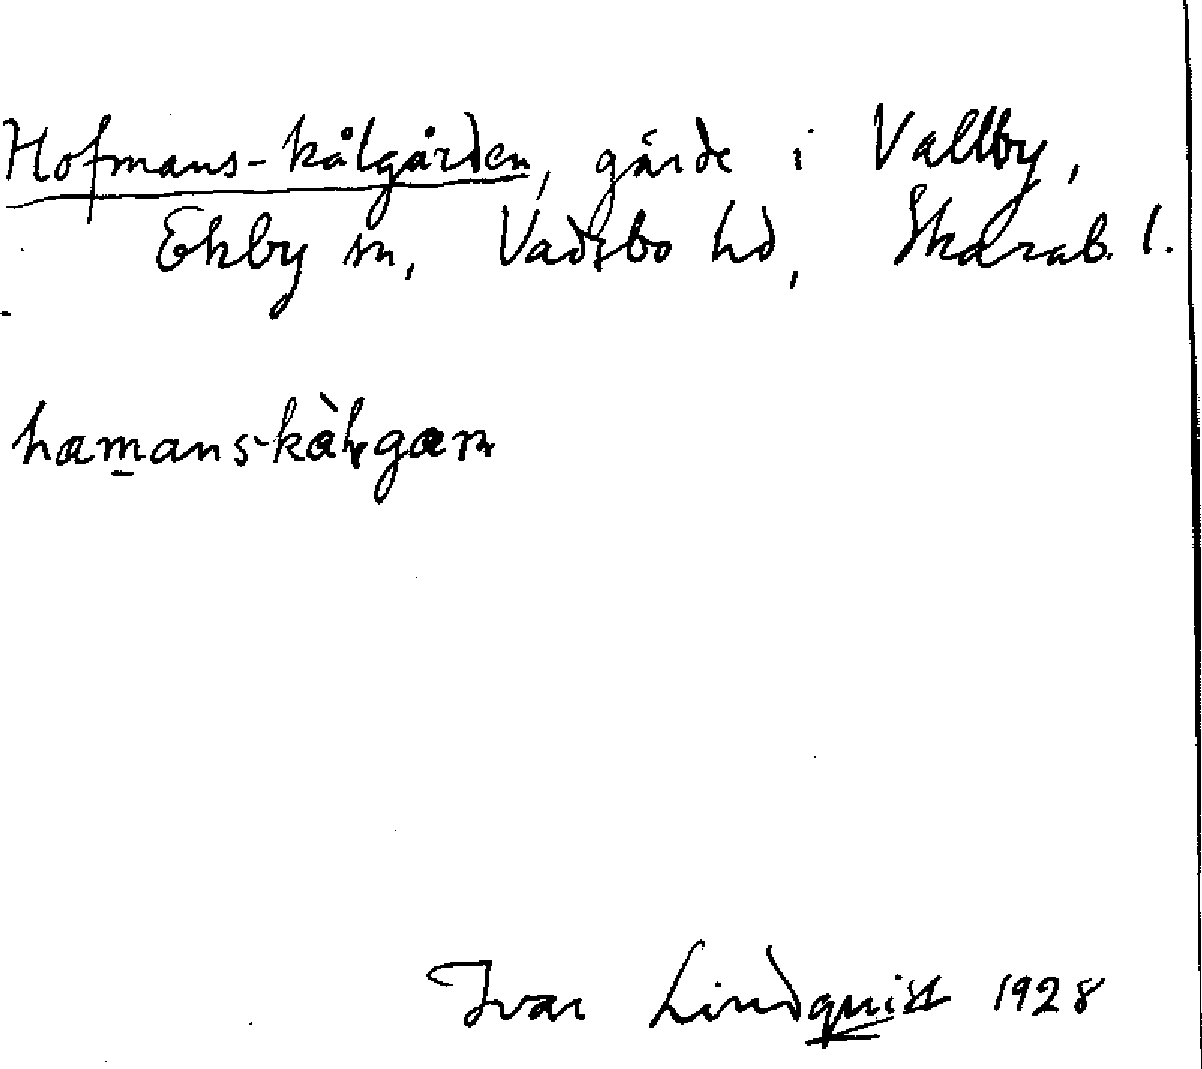 Hofmans-kålgården, gärde i Vallby,
Ekby sn, Vadsbo hd, Skarab. l.
hamans-kàlgaṇ
Ivar Lindquist 1928